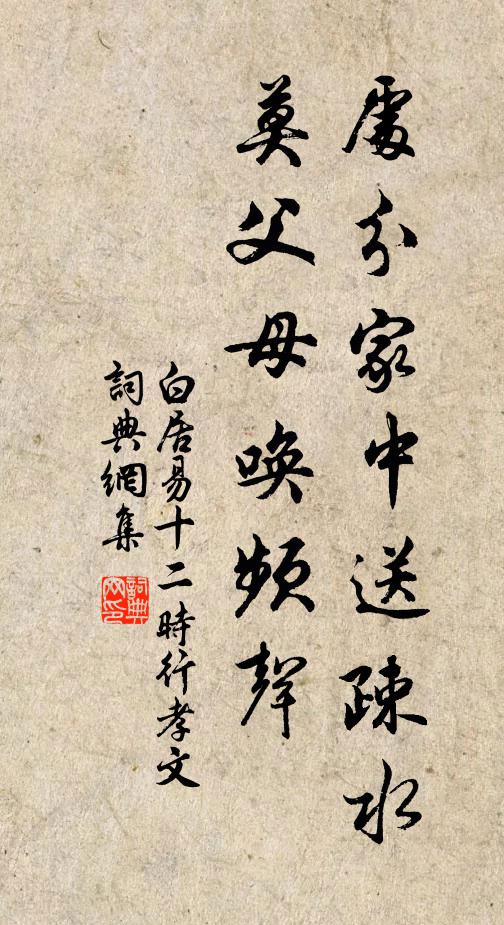 處分家中送疎水
莫父母喚頻聲
白居易十二時行孝文
詞典網集
詞典網印